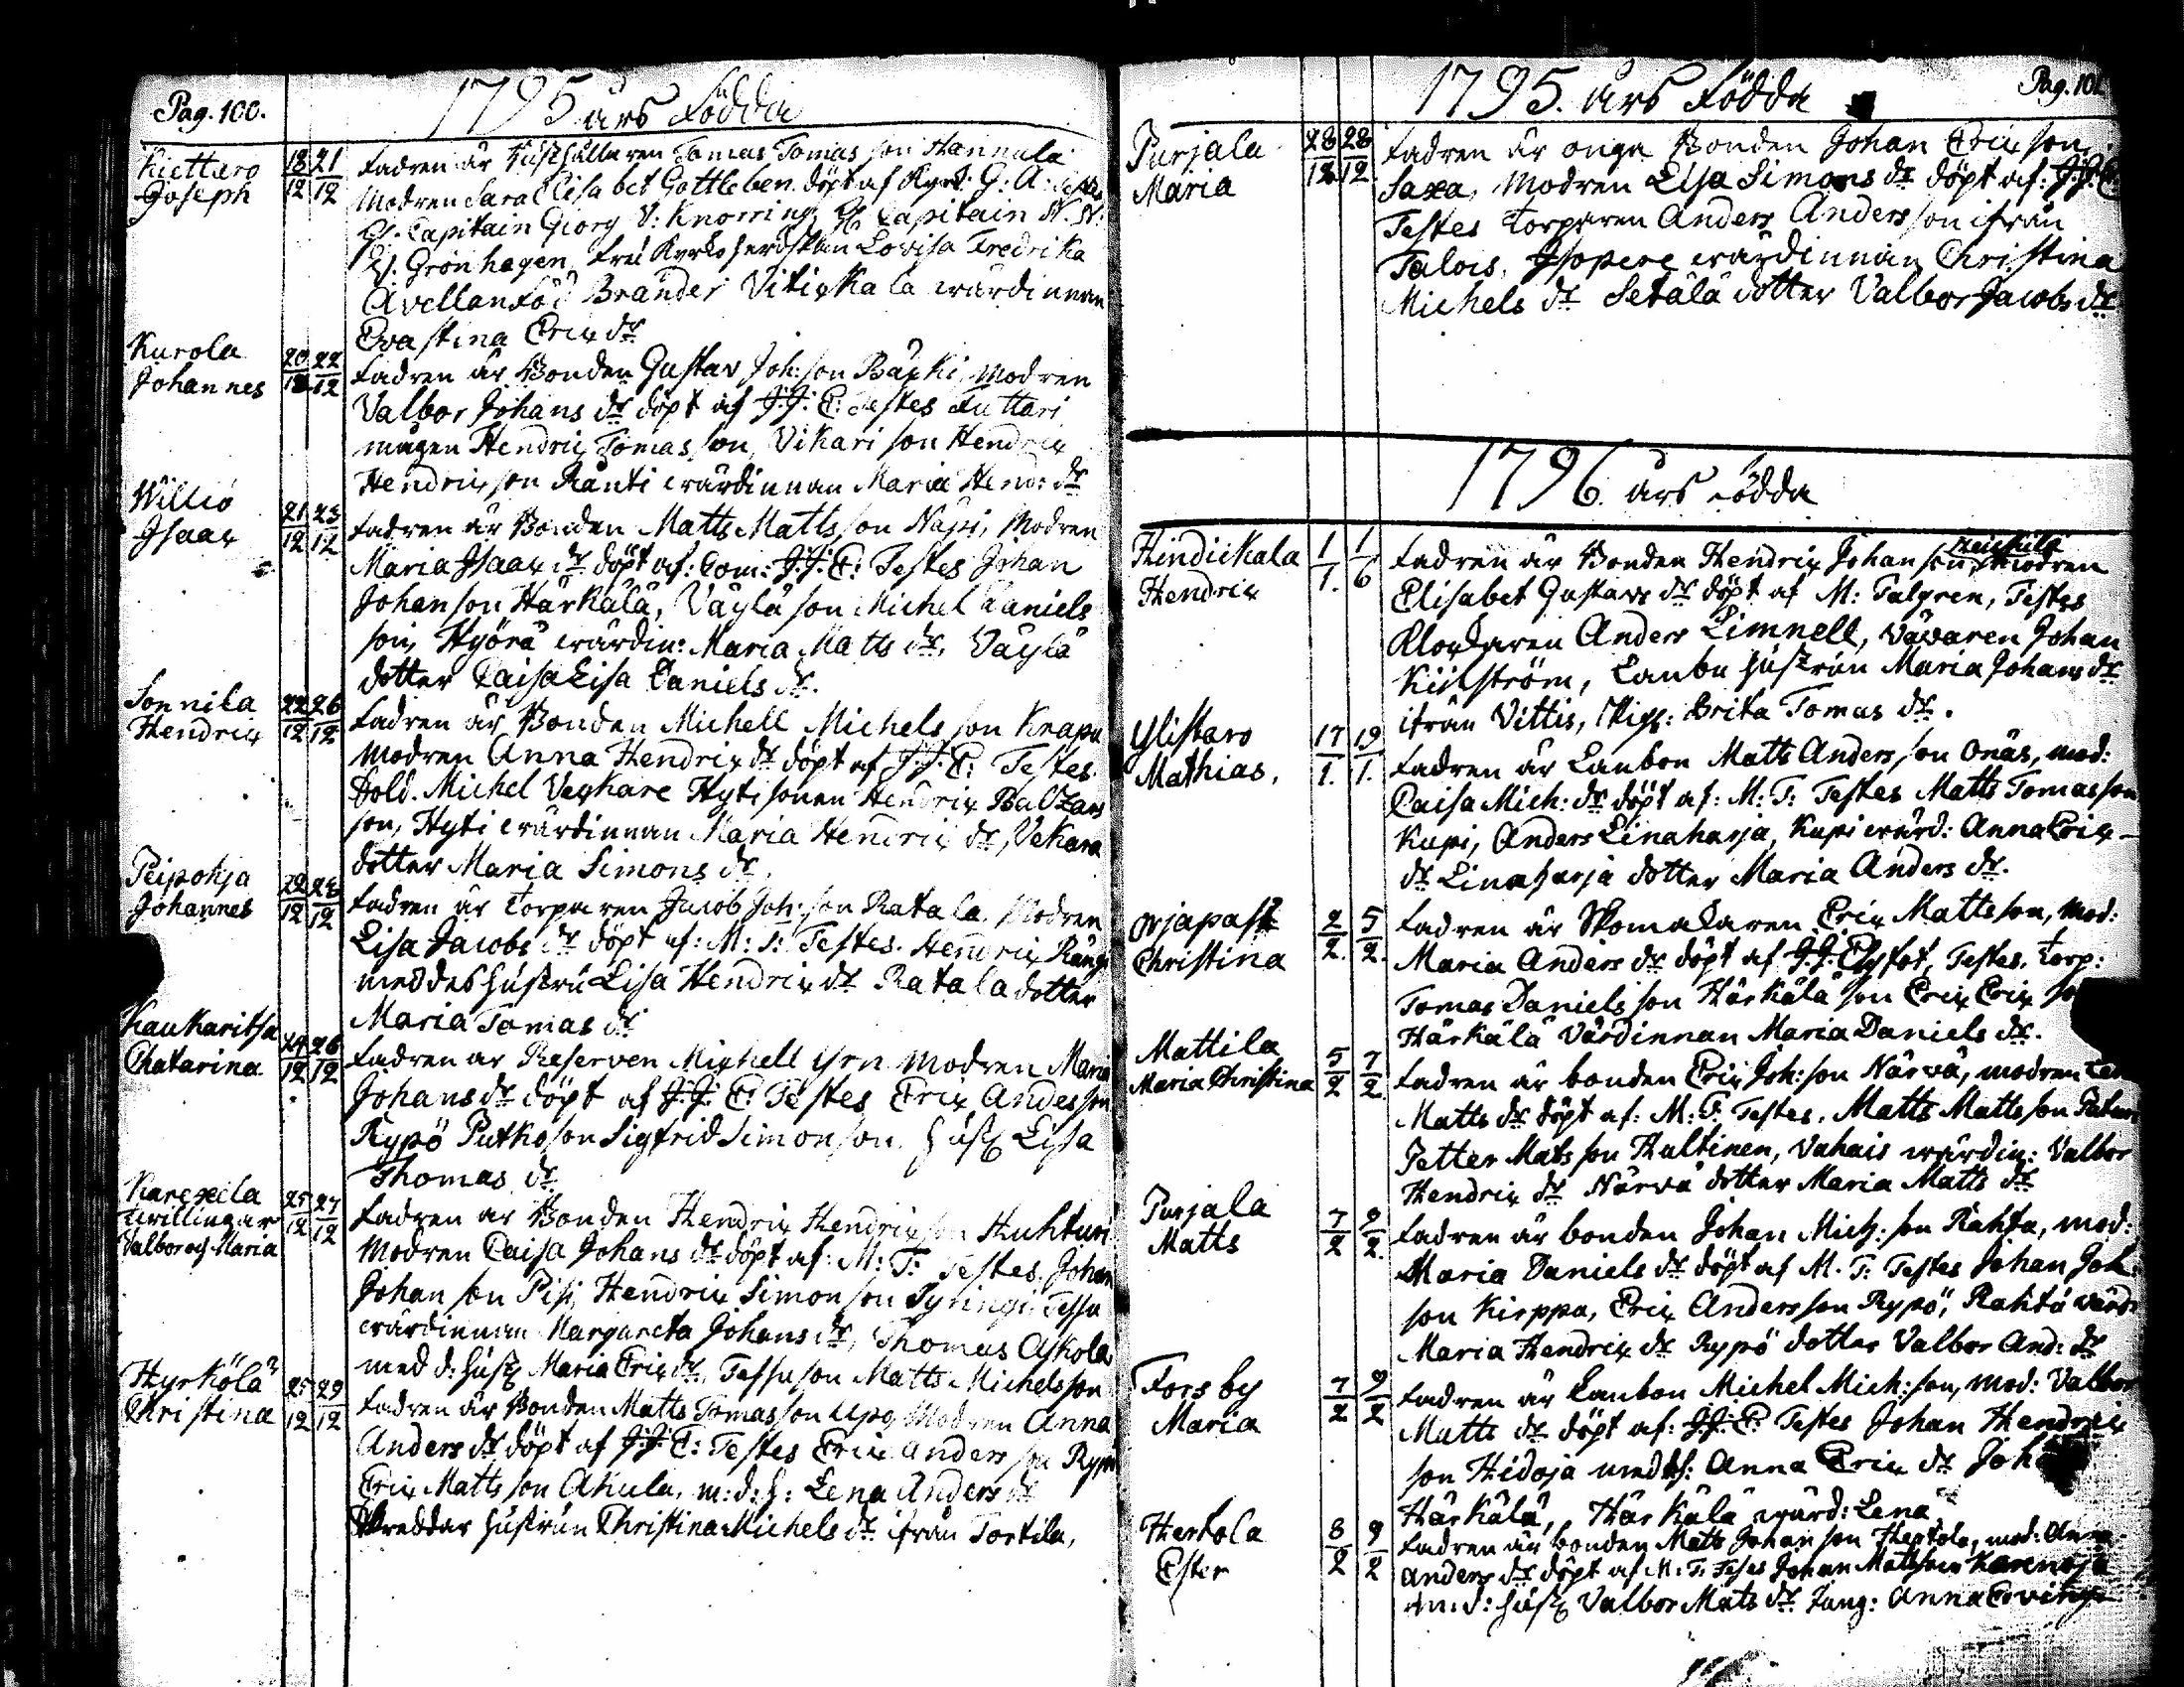 Pag. 100.
1795 års Födda
Kiettaro
Joseph
18/12 21/12
Fadren är Hushållaren Tomas Tomas son Hannula
Modren Sara Elisabet Gottleben. döpt af Kyrk: G: A:
Capitain Giorg V: Knorring, Capitain
Grönhagen, Kyrkoherdskan Lovisa Fredrika
Avellan Född Brander Vitikkala wärdinnan
Eva Stina Erix dr
Kurola
Johannes
20/12 22/12
Fadren är Bonden Gustav Joh: son Modren
Valbor Johans dr döpt af J: J: E: Testes Futtari
mågen Hendrix Tomas son, Vikari son Hendrix
Hendrix son Ränti wärdinnan Maria Hend: dr
Willio
Isaax
21/12 23/12
Fadren är Bonden Matts Matts son Näpi, Modren
Maria Isaax dr döpt af: Com: J: J: E: Testes Johan
Johan son Härkälä, Väylä son Michel Daniels
son, Hyörä wärdin: Maria Matts dr, Väylä
dotter Caisa Lisa Daniels dr.
Sonnila
Hendrix
22/12 26/12
Fadren är Bonden Michell Michels son Knapu
Modren Anna Hendrix dr döpt af J: J: E: Testes.
Sold. Michel Hyti sonen Hendrix Baltzars
son, Hyti wärdinnan Maria Hendrix dr, Vekara
dotter Maria Simons dr.
Peipohja
Johannes
22/12 28/12
Fadren är Torparen Jacob Joh: son Ratala. Modren
Lisa Jacobs dr döpt af: M: T: Testes. Hendrix
med des Hustru Lisa Hendrix dr Ratala dotter
Maria Tomas dr
Kaukaritsa
Chatarina
24/12 26/12
Fadren är Reserven Michell Yrn Modren Maria
Johans dr döpt af J: J: E: Testes Erix Andesson
Rypö Putko son Sigfrid Simon son. Hust Lisa
Thomas dr
Karexela
twillingar
Valbor och Maria
25/12 27/12
Fadren är Bonden Hendrix Hendrix son Huhturi
Modren Caisa Johans dr döpt af: M: T: Testes. Johan
Johan son Pisi, Hendrix Simon son Tyringi Tessu
wärdinnan Margareta Johans dr, Thomas Askola
med d: Hust Maria Erix dr, Tessu son Matts Michelsson
Hyrkölä
Christina
25/12 29/12
Fadren är Bonden Matts Tomas son Modren Anna
Anders dr döpt af J: J: E: Testes Erix Anders son Rypö
Erix Matts son Akula, m: d: H: Lena Anders dr
Skreddar Hustrun Christina Michels dr ifrån Tortila,
Pag. 101
1795. års Födda
Purjala
Maria
28/12 28/12
Fadren är onga Bonden Johan Erix son
Saxa, Modren Lisa Simons dr döpt af: J: J: E:
Testes Torparen Anders Anders son ifrån
Talois, Isopere wärdinnan Christina
Michels dr Setälä dotter Valbor Jacobs dr
1796. års Födda
Hindickala
Hendrix
1/1. 1/6
Fadren är Bonden Hendrix Johan son, Heickilä Modren
Elisabet Gustavs dr döpt af M: Talgren, Testes
Klockaren Anders Limnell, Vävaren Johan
Kiihlström, Lanbu Hustrun Maria Johans dr
ifrån Vittis, Pig: Brita Tomas dr.
Ylistaro
Mathias,
17/1. 19/1.
Fadren är Lanbon Matts Anders son Onäs, mod:
Caisa Mich: dr döpt af: M: T: Testes Matts Tomas son
Kupi, Anders Linaharja, Kupi wärd: Anna Erix
dr Linaharja dotter Maria Anders dr.
Christina
2/2. 5/2.
Fadren är Skomakaren Erix Matts son, Mod:
Maria Anders dr döpt af J: J: Elgfot, Testes. Torp:
Tomas Daniels son Härkälä son Erix Erix
Härkälä Värdinnan Maria Daniels dr.
Mattila
Maria Christina
5/2 7/2.
Fadren är bonden Erix Joh: son Närvä, modren
Matts dr döpt af: M: T: Testes. Matts Matts son
Petter Mats son Hultinen, Vahais wärdin: Valbor
Hendrix dr Närvä dotter Maria Matts dr
Purjala
Matts
7/2 9/2.
Fadren är bonden Johan Mich: son Rahta, mod:
Maria Daniels dr döpt af M. T: Testes Johan Joh:
son Kirppa, Erix Anders son Rypö, Rahta värd:
Maria Hendrix dr Rypö dotter Valbor And: dr
Fors by
Maria
7/2 9/2
Fadren är Lanbon Michel Mich: son, mod: Valbor
Matts dr döpt af: J: J: E: Testes Johan Hendrix
son Hidoja med H: Anna Erix dr
Härkälä, Härkälä wärd: Lena
Hertola
Ester
8/2 9/2
Fadren är bonden Matts Johan son Hertola, mod: Anna
Anders dr döpt af M: T: Testes Johan Matsson Karenoja
m: d: Hust Valbor Mats dr Jung: Anna